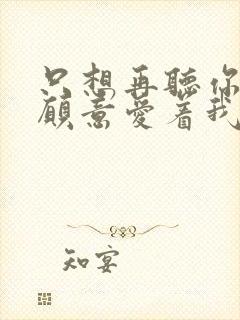 只想再聽你
願意愛着我
知宴